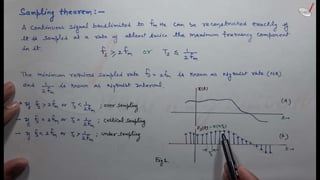 Sampling theorem:-
A continuous signal bandlimited to fm Hz can be reconstructed exactly if
it is sampled at a rate of atleast twice the maximum frequency component
in it.
fs ≥ 2fm or Ts ≤ 1/2fm
The minimum required sampled rate fs = 2fm is known as Nyquist rate (NR)
and 1/2fm is known as Nyquist Interval.
- If fs > 2fm or Ts < 1/2fm ; over sampling
- If fs = 2fm or Ts = 1/2fm ; Critical sampling
- If fs < 2fm or Ts > 1/2fm ; under sampling
x(t)
t→
(a)
t→
(b)
Fig 1.